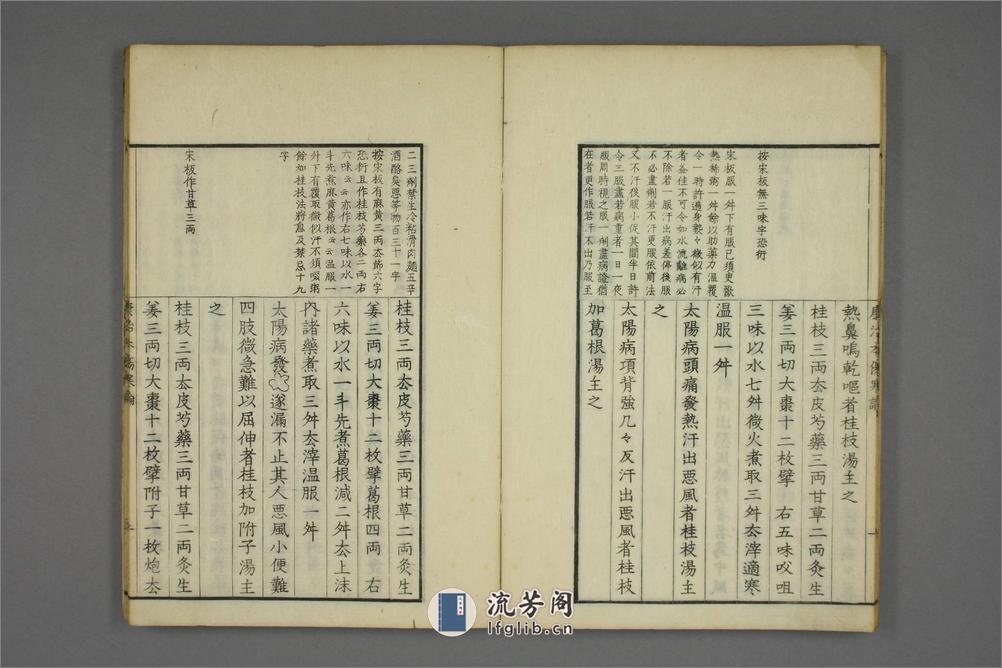 康治本傷寒論
按宋板無三味字恐衍
宋板服一舛下有服已須臾歠
熱稀粥一舛餘以助藥力温覆
令一時許遍身漐々微似有汗
者益佳不可令如水流離病必
不除若一服汗出病差停後服
不必盡劑若不汗更服依前法
又不汗後服小促其間半日許
令三服盡若病重者一日一夜
服周時視之服一劑盡病證猶
在者更作服若汗不出乃服至
熱鼻鳴乾嘔者桂枝湯主之
桂枝三両去皮芍藥三両甘草二両炙生
姜三両切大棗十二枚擘右五味㕮咀
三味以水七舛微火煮取三舛去滓適寒
温服一舛
太陽病頭痛發熱汗出悪風者桂枝湯主
之
太陽病項背強几々反汗出悪風者桂枝
加葛根湯主之
二三劑禁生冷粘滑肉麺五辛
酒酪臭悪等物百三十一字
按宋板有麻黄三両去節六字
恐衍且作桂枝芍藥各二両右
六味云云亦作右七味以水一
斗先煮麻黄葛根云云温服一
舛下有覆取微似汗不須啜粥
餘如桂枝法將息及禁忌十九
字
宋板作甘草三両
桂枝三両去皮芍藥三両甘草二両炙生
姜三両切大棗十二枚擘葛根四両右
六味以水一斗先煮葛根減二舛去上沫
内諸藥煮取三舛去滓温服一舛
太陽病發汗遂漏不止其人悪風小便難
四肢微急難以屈伸者桂枝加附子湯主
之
桂枝三両去皮芍藥三両甘草二両炙生
姜三両切大棗十二枚擘附子一枚炮去
康治本傷寒論
流芳阁
lfglib.cn